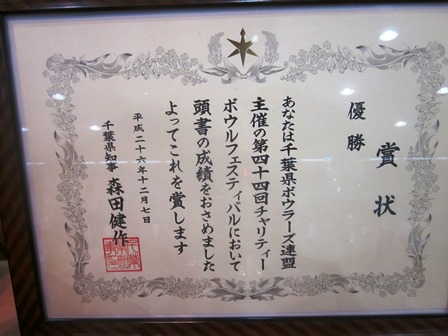 賞状
優勝
あなたは千葉県ボウラーズ連盟
主催の第四十四回チャリティー
ボウルフェスティバルにおいて
頭書の成績をおさめました
よってこれを賞します
平成二十六年十二月七日
千葉県知事 森田健作